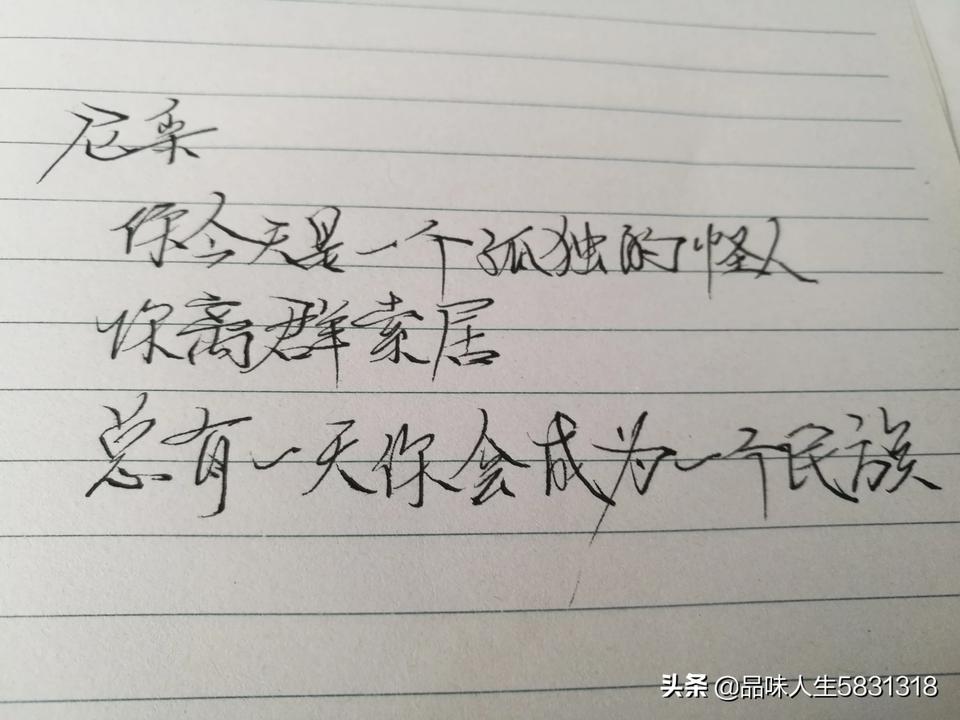 尼采
你今天是一个孤独的怪人
你离群索居
总有一天你会成为一个民族
头条 @品味人生5831318